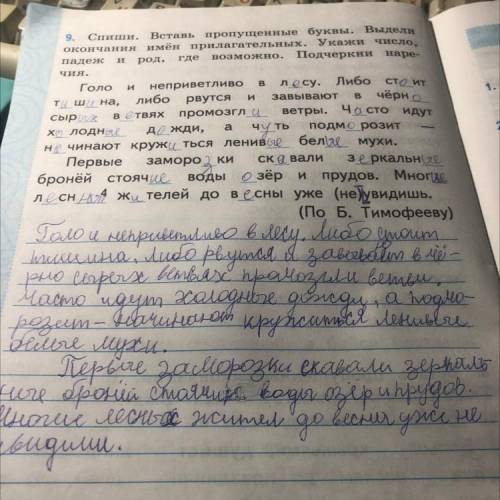 9. Спиши. Вставь пропущенные буквы. Выдели
окончания имён прилагательных. Укажи число,
падеж и род, где возможно. Подчеркни наре-
чия.
Голо и неприветливо в лесу. Либо стоит
тишина, либо рвутся и завывают в чёрно
сырых ветвях промозгли ветры. Часто идут
холодные дожди, а чуть подморозит —
начинают кружиться ленивые белые мухи.
Первые заморозки сковали зеркальные
бронёй стоячие воды озёр и прудов. Многие
лесных4 жителей до весны уже (не)увидишь.
(По Б. Тимофееву)
1.
Голо и неприветливо в лесу. Либо стоит
тишина, либо рвутся и завывают в чё-
рно сырых ветвях промозгли ветви.
Часто идут холодные дожди, а подмо-
розит — начинают кружиться ленивые
белые мухи.
Первые заморозки скавали зеркаль
ные бронёй стоячие воды озёр и прудов.
Многие лесных жител до весны уже не
видими.